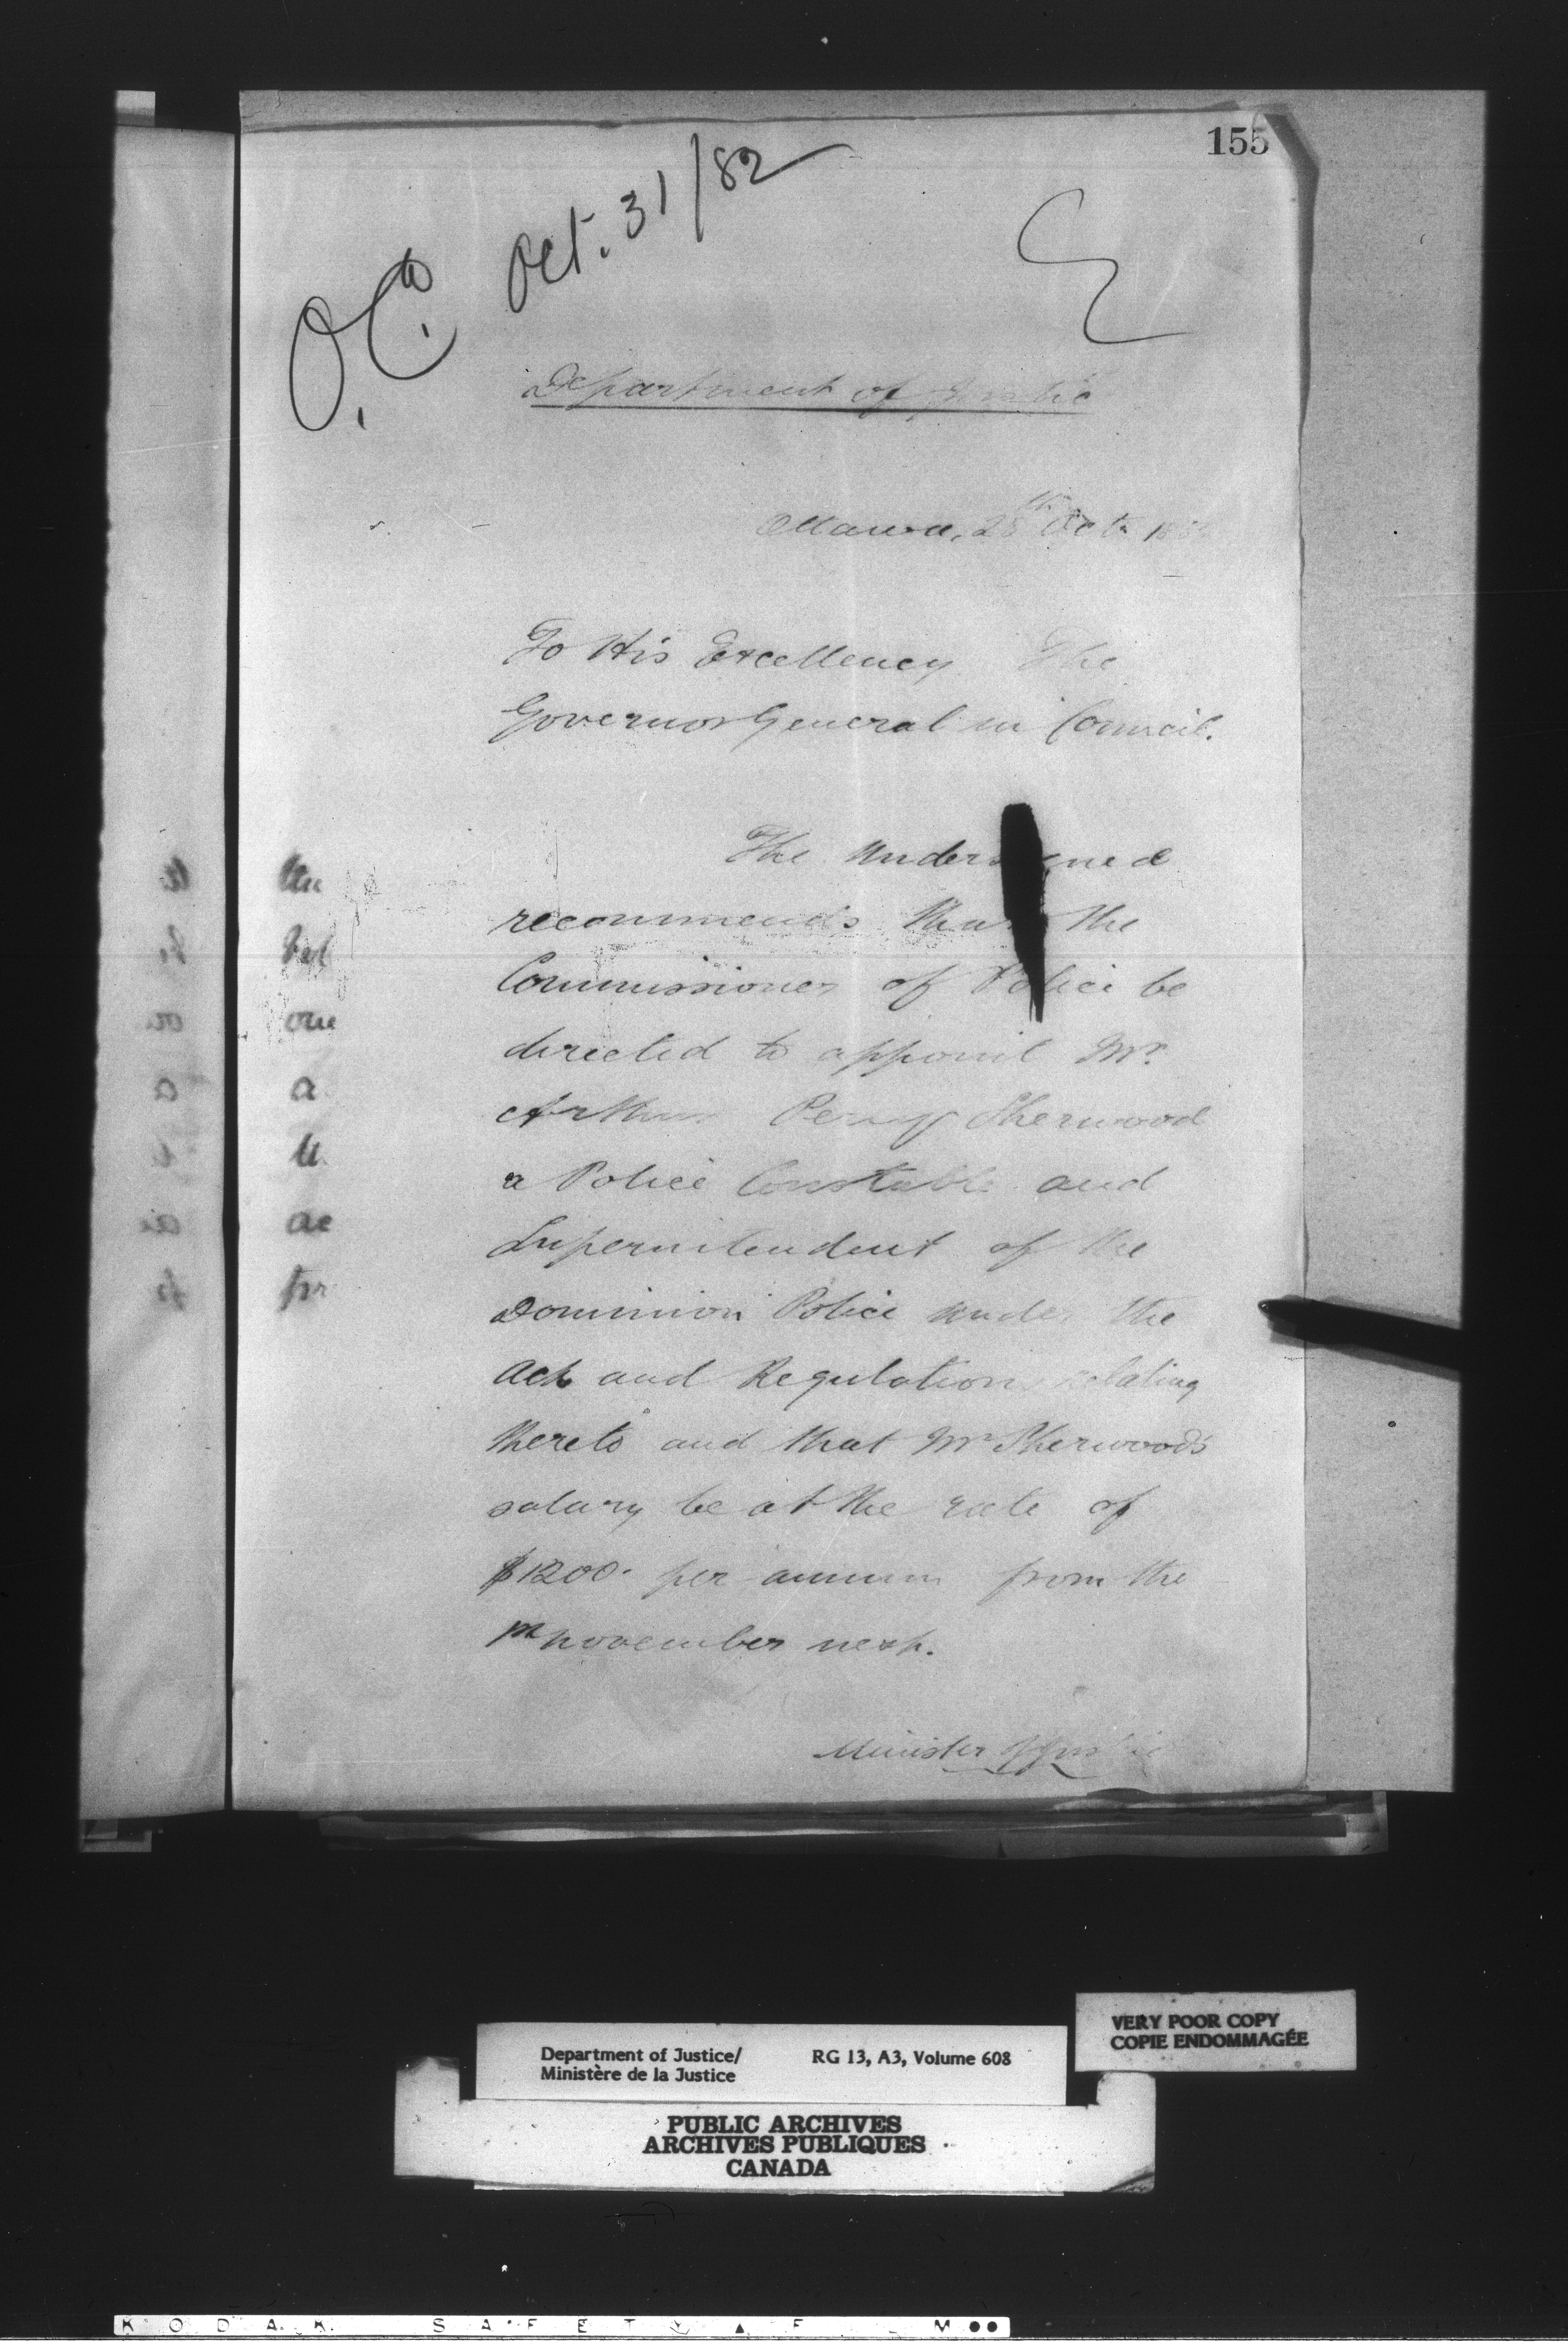 155
O.C. Oct. 31/82
Department of Justice
Ottawa, 28th Oct. 188
To His Excellency The
Governor General in Council.
The Undersigned
recommends that the
Commissioner of Police be
directed to appoint Mr.
Arthur Percy Sherwood
a Police Constable and
Superintendent of the
Dominion Police under the
Act and Regulations relating
thereto and that Mr Sherwood's
salary be at the rate of
$1200. per annum from the
1st November next.
Minister of Justice
the
one
a
ac
Department of Justice/ RG 13, A3, Volume 608
Ministère de la Justice
VERY POOR COPY
COPIE ENDOMMAGÉE
PUBLIC ARCHIVES
ARCHIVES PUBLIQUES
CANADA
KODAK SAFETY FILM